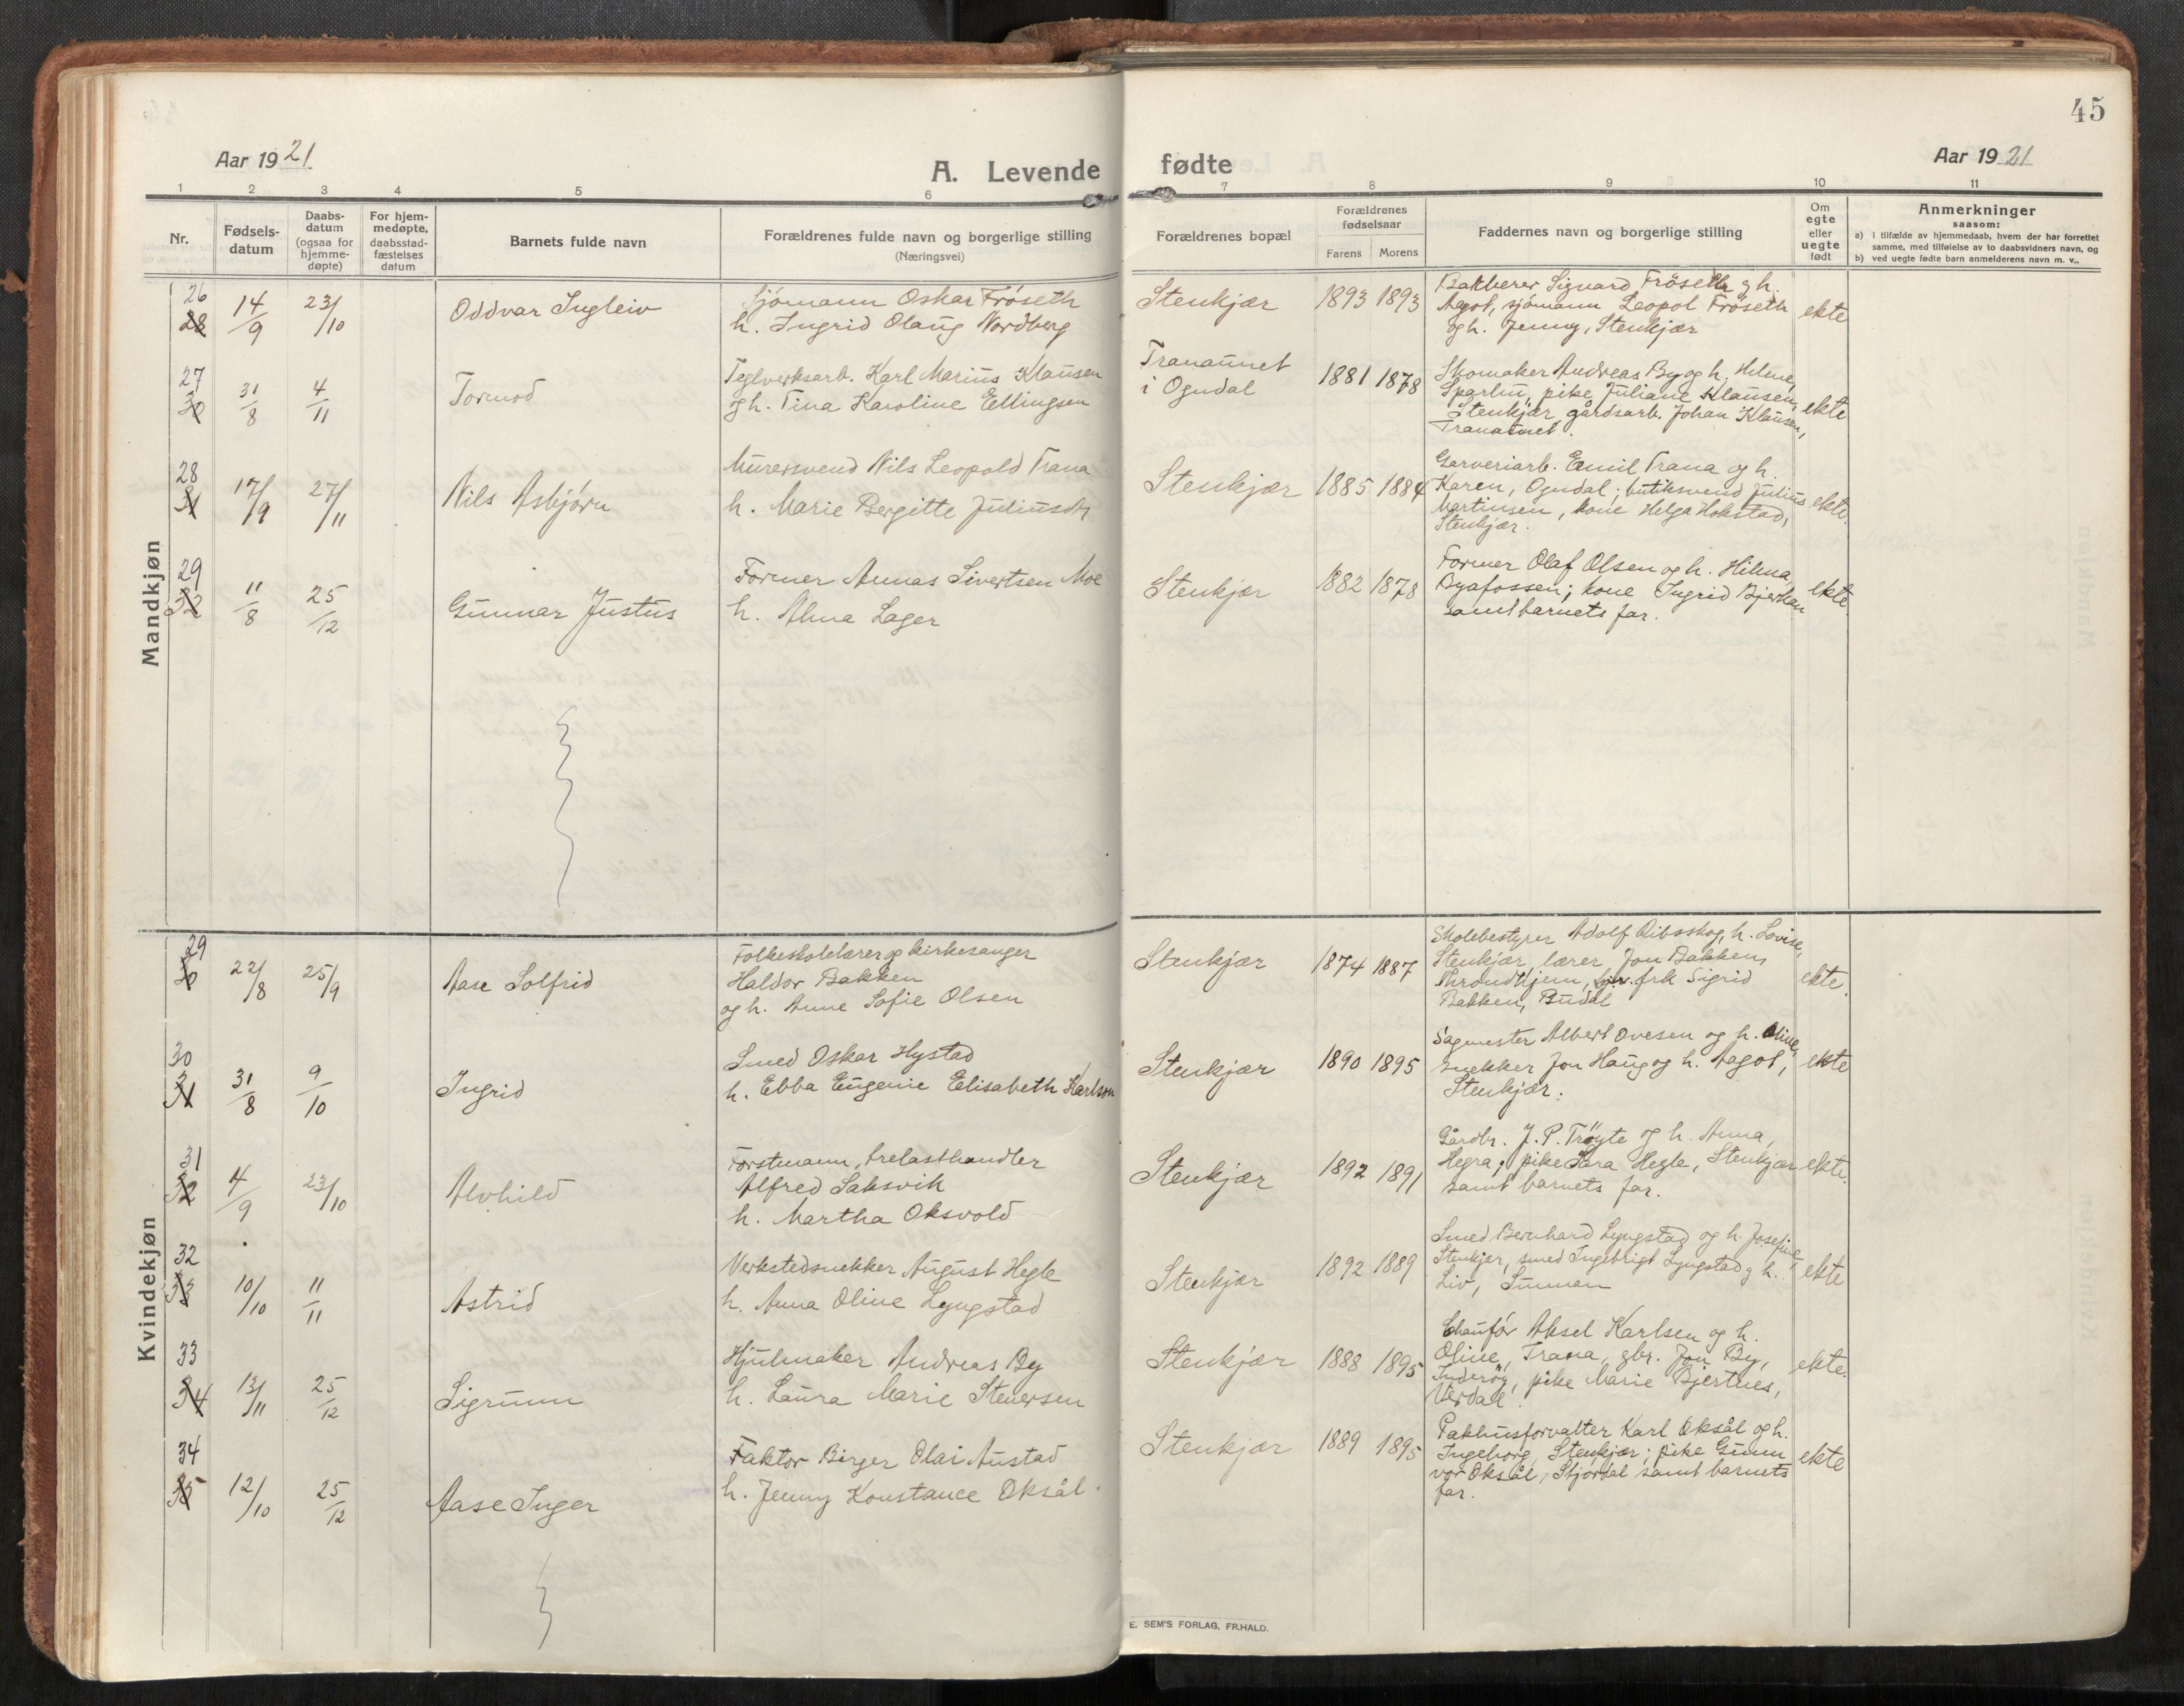 45
Aar 1921
A. Levende fødte
Aar 1921
1 2 3 4 5 6 7 8 9 10 11
Nr.
Fødsels-
datum
Daabs-
datum
(ogsaa for
hjemme-
døpte)
For hjem-
medøpte,
daabsstad-
fæstelses
datum
Barnets fulde navn
Forældrenes fulde navn og borgerlige stilling
(Næringsvei)
Forældrenes bopæl
Forældrenes
fødselsaar
Farens Morens
Faddernes navn og borgerlige stilling
Om
egte
eller
uegte
født
Anmerkninger
saasom:
a) i tilfælde av hjemmedaab, hvem der har forrettet
samme, med tilføielse av to daabsvidners navn, og
b) ved uegte fødte barn anmelderens navn m. v..
Mandkjøn
26
28
14/9 23/10
Oddvar Ingleiv
Sjømann Oskar Frøseth
h. Ingrid Olaug Nordberg
Stenkjær
1893 1893
Sigvard Frøseth og h.
Aagot, sjømann Leopol Frøseth
og h. Jenny, Stenkjær
ekte
27
30
31/8 4/11
Tormod
Teglverksarb. Karl Marius Klausen
og h. Tina Karoline Ellingsen
Tranaunet
i Ogndal
1881 1878
Skomaker Andreas By og h. Helene,
Sparbu, pike Juliane Klausen,
Stenkjær, gårdsarb. Johan Klausen,
Tranaunet.
ekte
28
31
17/9 27/11
Nils Asbjørn
Murersvend Nils Leopold Trana
h. Marie Bergitte Juliusdtr
Stenkjær
1885 1884
Garveriarb. Emil Trana og h.
Karen, Ogndal; butiksvend Julius
Martinsen, kone Helga Hokstad,
Stenkjær.
ekte.
29
32
11/8 25/12
Gunnar Justus
Former Annas Sivertsen Moe
h. Alma Lager
Stenkjær
1882 1878
Former Olaf Olsen og h. Hilma,
Byafossen; kone Ingrid Bjerkan
samt barnets far.
ekte.
Kvindekjøn
29
30
22/8 25/9
Aase Solfrid
Folkeskolelærer og kirkesanger
Haldor Bakken
og h. Anne Sofie Olsen
Stenkjær
1874 1887
Skolebestyrer Adolf Ribsskog, h. Lovise,
Stenkjær, lærer Jon Bakken,
Throndhjem, frk Sigrid
Bakken, Budal
ekte.
30
31
31/8 9/10
Ingrid
Smed Oskar Hystad
h. Ebba Eugenie Elisabeth Karlson
Stenkjær
1890 1895
Sagmester Albert Ovesen og h. Oline,
snekker Jon Haug og h. Aagot,
Stenkjær.
ekte
31
32
4/9 23/10
Alvhild
Forstmann, trelasthandler
Alfred Saksvik
h. Martha Oksvold
Stenkjær
1892 1891
Gårdbr. J. P. Trøyte og h. Anna,
Hegra; pike Sara Hegle, Stenkjær
samt barnets far.
ekte.
32
33
10/10 11/11
Astrid
Verkstedsnekker August Hegle
h. Anna Oline Lyngstad
Stenkjær
1892 1889
Smed Bernhard Lyngstad og h. Josefine,
Stenkjær, smed Ingebrigt Lyngstad og h.
Liv, Sunnan
ekte
33
34
13/11 25/12
Sigrunn
Hjulmaker Andreas By
h. Laura Marie Stenersen
Stenkjær
1888 1895
Chaufør Aksel Karlsen og h.
Oline, Trana, gbr. Jon By,
Inderøy, pike Marie Bjertnes,
Verdal.
ekte.
34
35
12/10 25/12
Aase Inger
Faktor Birger Olai Austad
h. Jenny Konstance Oksål.
Stenkjær
1889 1895
Pakhusforvalter Karl Oksål og h.
Ingeborg, Stenkjær; pike Gunn
vor Oksål, Stjørdal samt barnets
far.
ekte
E. SEM'S FORLAG, FR.HALD.